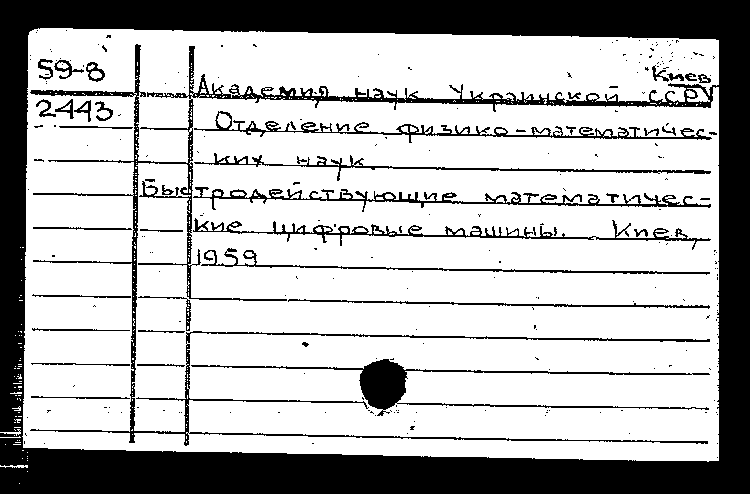 59-8
Киев
Академия наук Украинской ССР
2443
Отделение физико-математичес-
ких наук
Быстродействующие математичес-
кие цифровые машины. Киев,
1959